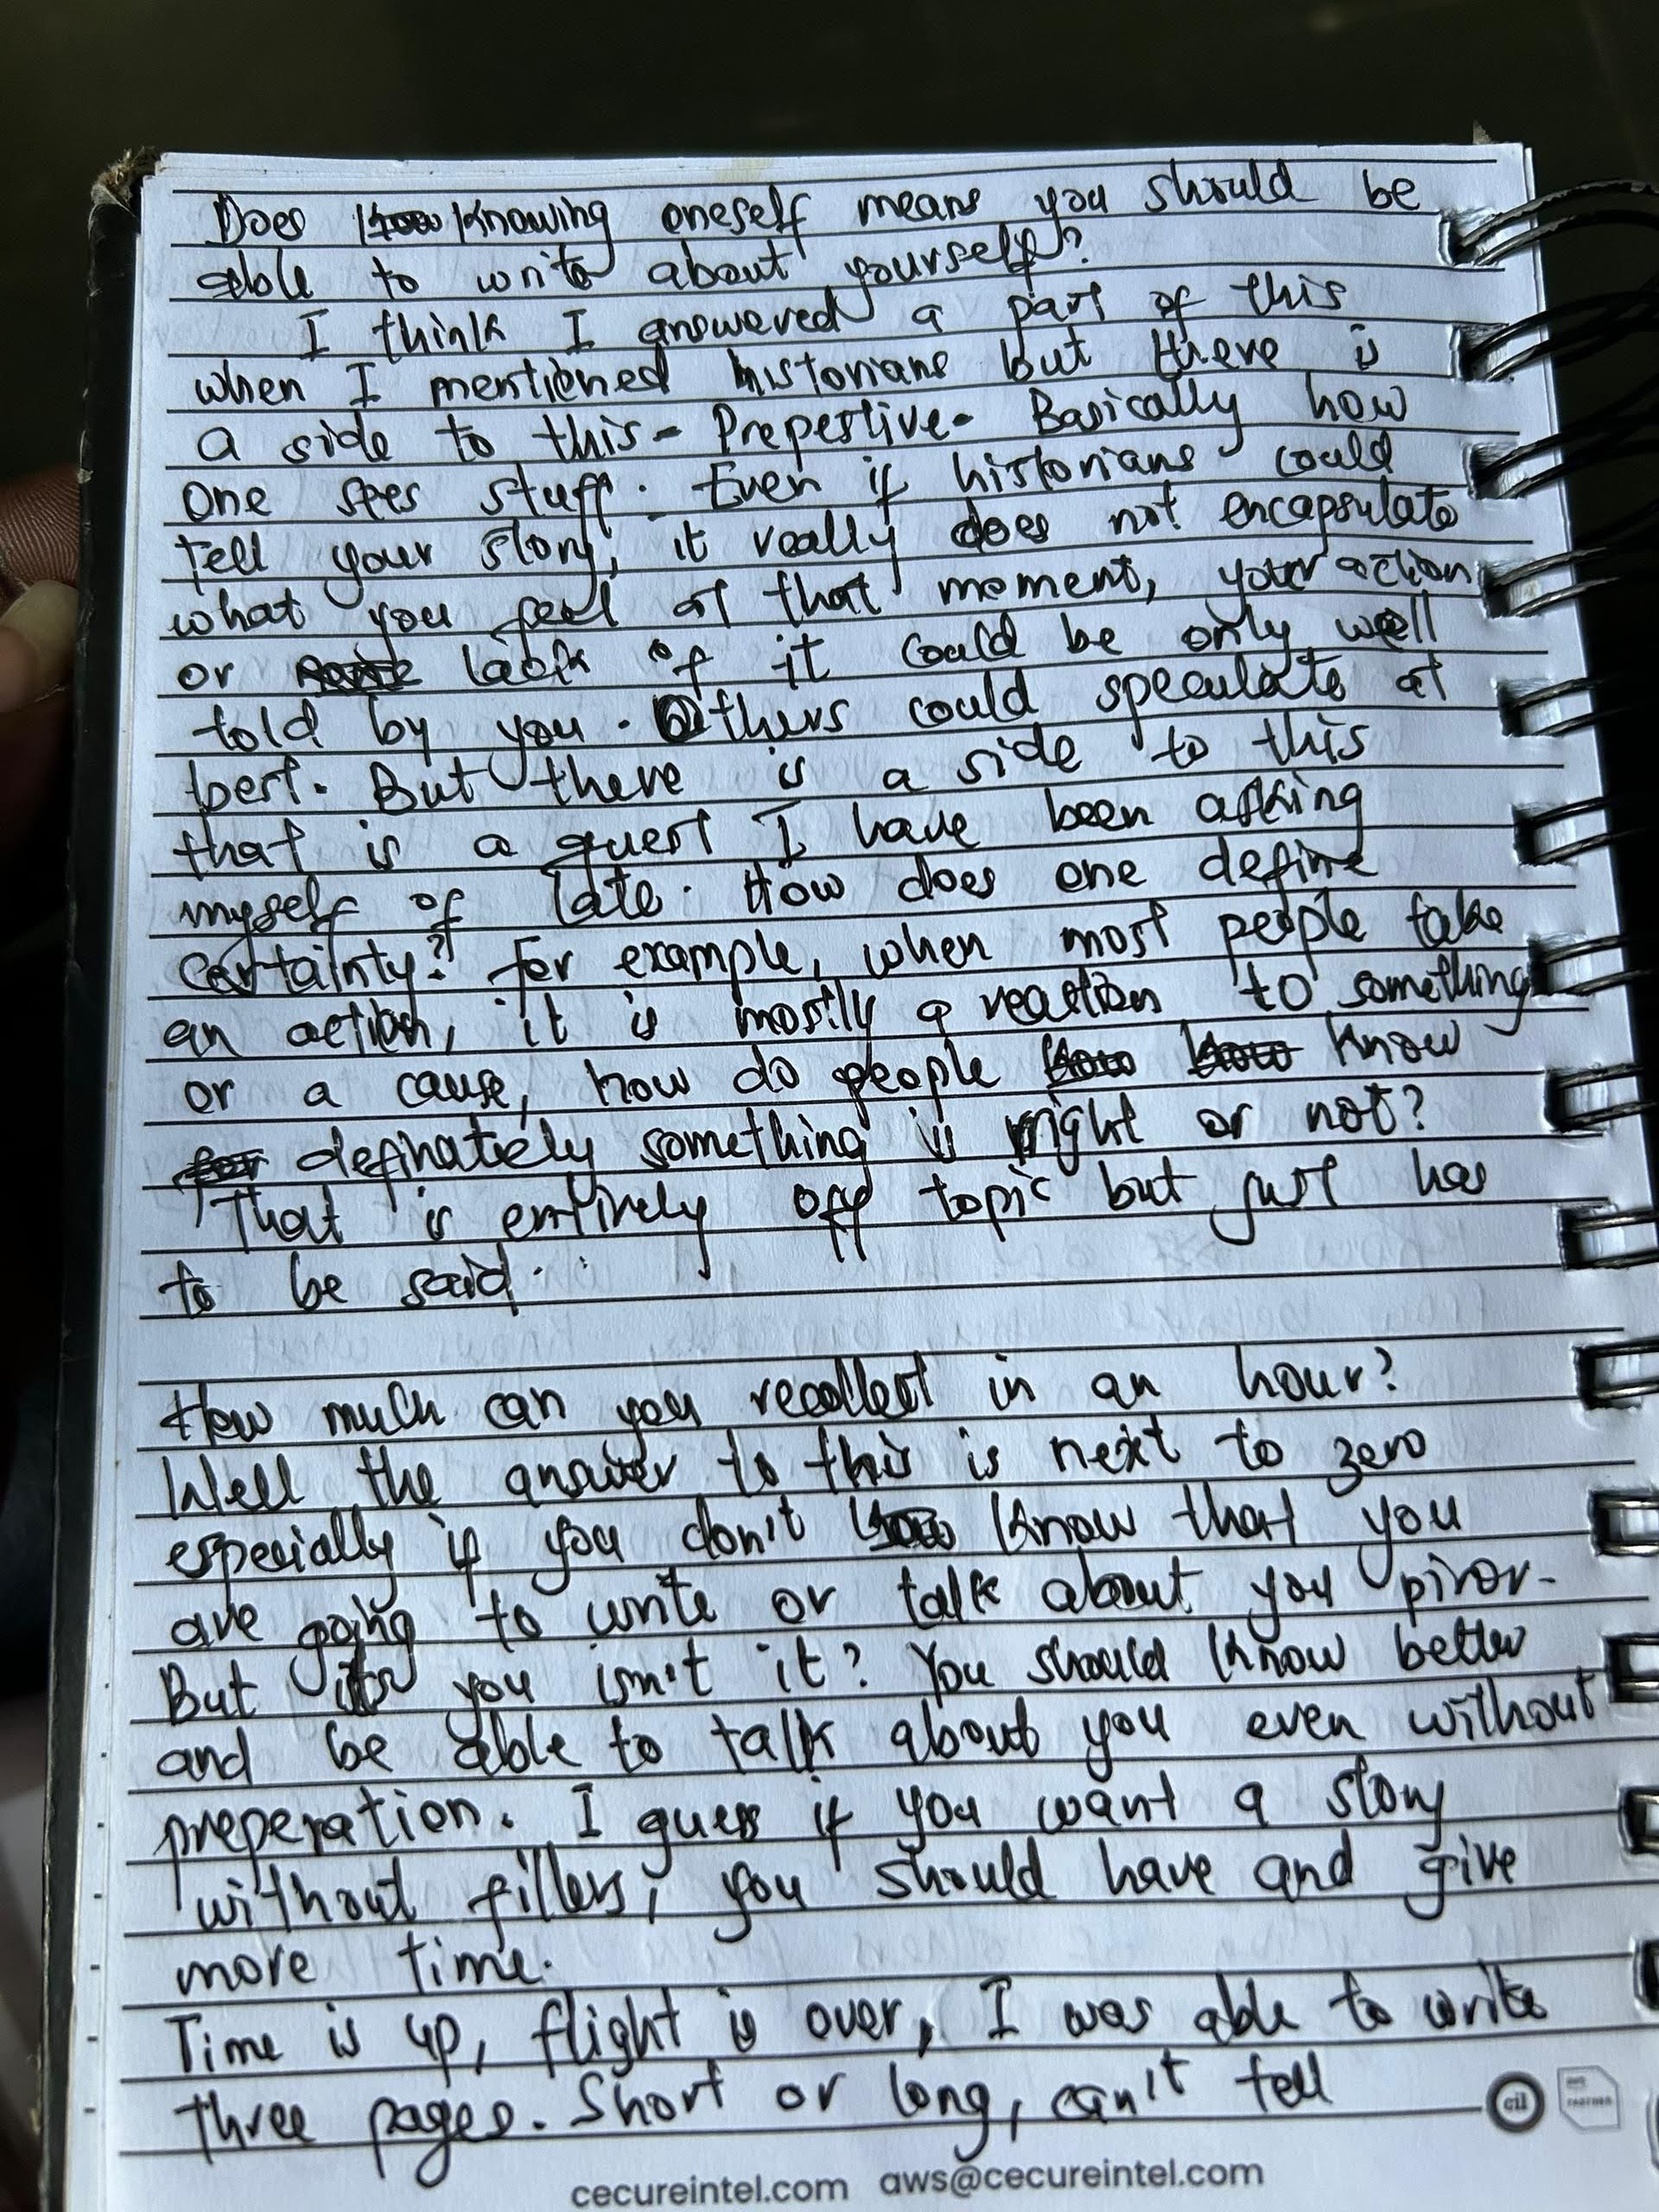 Does Knowing oneself means you should be
able to write about yourself?
I think I answered a part of this
when I mentioned historians but there is
a side to this - Prepestive. Basically how
one sees stuff. Even if historians could
tell your story, it really does not encapsulate
what you feel at that moment, your action
or lack of it could be only well
told by you. Others could speculate at
best. But there is a side to this
that is a quest I have been asking
myself of late. How does one define
certainty? For example, when most people take
an action, it is mostly a reaction to something
or a cause, how do people know
definately something is right or not?
That is entirely off topic but just has
to be said.
How much can you recollect in an hour?
Well the answer to this is next to zero
especially if you don't know that you
are going to write or talk about you piror.
But its you isn't it? You should know better
and be able to talk about you even without
preperation. I guess if you want a story
without fillers, you should have and give
more time.
Time is up, flight is over, I was able to write
three pages. Short or long, can't tell
cil aws PARTNER
cecureintel.com aws@cecureintel.com